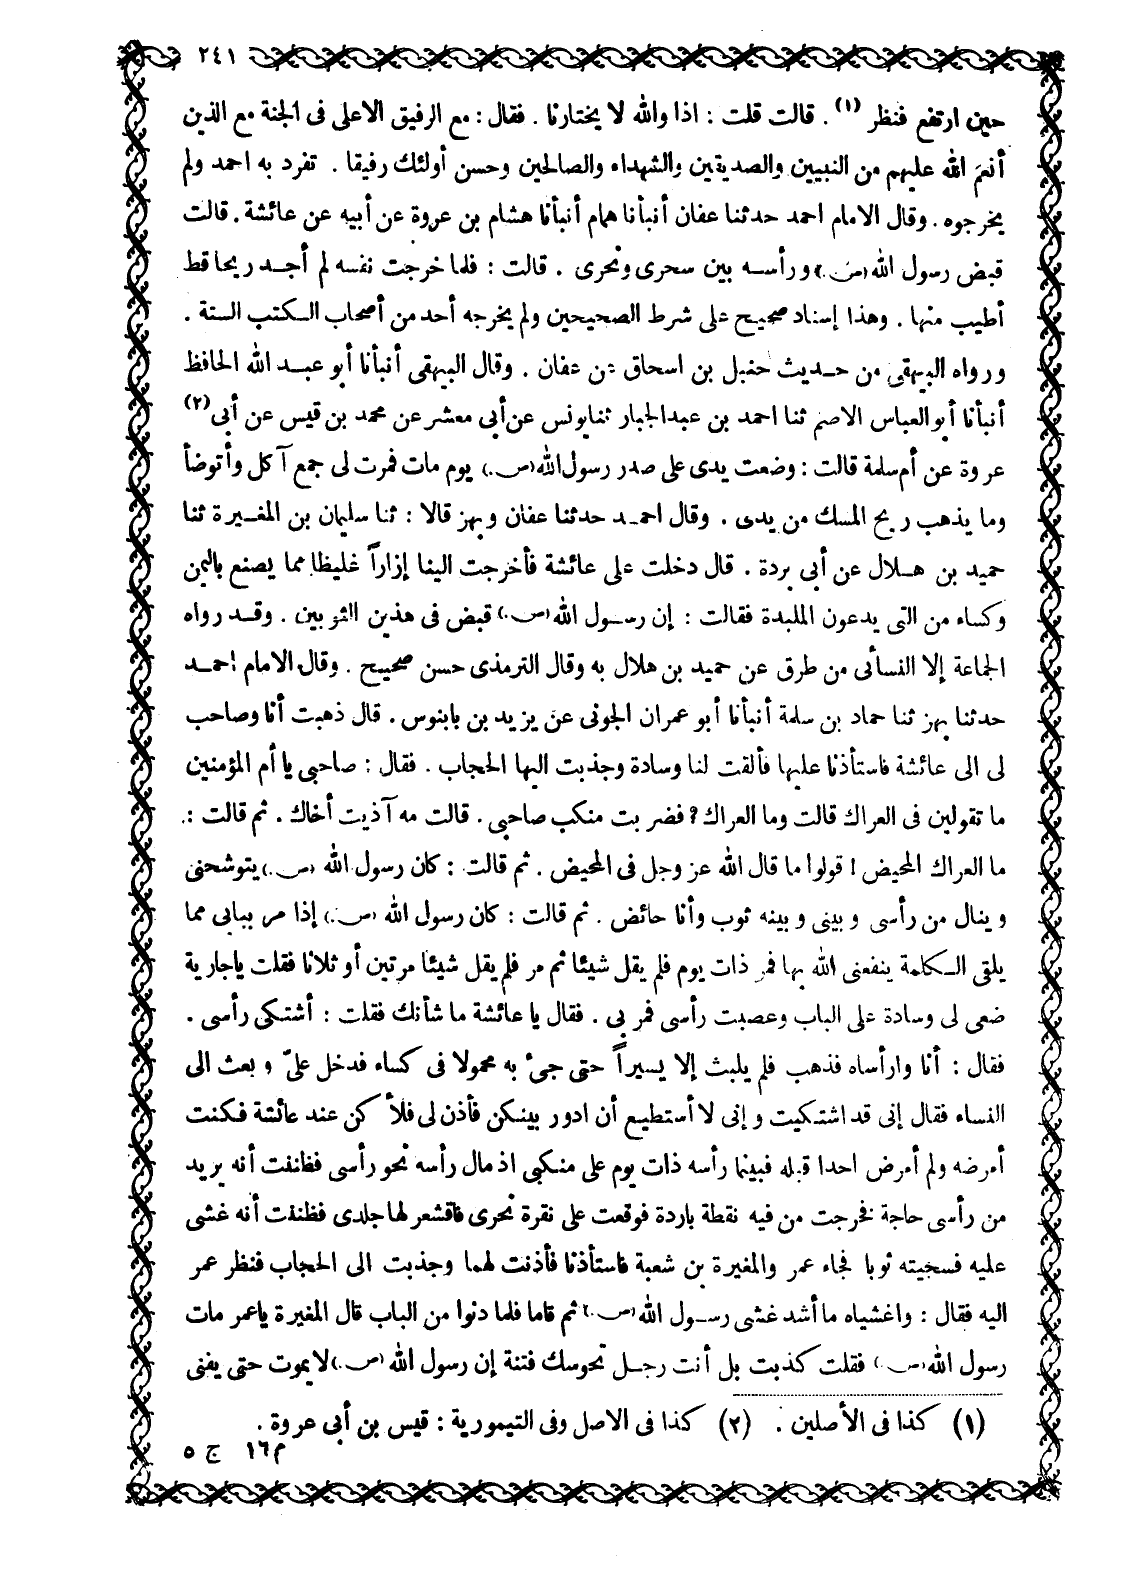 ٢٤١
حين ارتفع فنظر (١) . قالت قلت : اذا والله لا يختارنا . فقال : مع الرفيق الاعلى فى الجنة مع الذين
أنعم الله عليهم من النبيين والصديقين والشهداء والصالحين وحسن أولئك رفيقا . تفرد به احمد ولم
يخرجوه . وقال الامام احمد حدثنا عفان أنبأنا همام أنبأنا هشام بن عروة عن أبيه عن عائشة . قالت
قبض رسول الله (ص.) ورأسه بين سحرى ونحرى . قالت : فلما خرجت نفسه لم أجد ريحا قط
أطيب منها . وهذا إسناد صحيح على شرط الصحيحين ولم يخرجه أحد من أصحاب الكتب الستة .
ورواه البيهقى من حديث حنبل بن اسحاق عن عفان . وقال البيهقى أنبأنا أبو عبد الله الحافظ
أنبأنا أبو العباس الاصم ثنا احمد بن عبد الجبار ثنا يونس عن أبى معشر عن محمد بن قيس عن أبى (٢)
عروة عن أم سلمة قالت : وضعت يدى على صدر رسول الله (ص.) يوم مات فمرت لى جمع آكل وأتوضأ
وما يذهب ريح المسك من يدى . وقال احمد حدثنا عفان وبهز قالا : ثنا سليمان بن المغيرة ثنا
حميد بن هلال عن أبى بردة . قال دخلت على عائشة فأخرجت الينا إزاراً غليظا مما يصنع باليمن
وكساء من التى يدعون الملبدة فقالت : إن رسول الله (ص.) قبض فى هذين الثوبين . وقد رواه
الجماعة إلا النسأئى من طرق عن حميد بن هلال به وقال الترمذى حسن صحيح . وقال الامام احمد
حدثنا بهز ثنا حماد بن سلمة أنبأنا أبو عمران الجونى عن يزيد بن بابنوس . قال ذهبت أنا وصاحب
لى الى عائشة فاستأذنا عليها فألقت لنا وسادة وجذبت اليها الحجاب . فقال : صاحبى يا أم المؤمنين
ما تقولين فى العراك قالت وما العراك ؟ فضربت منكب صاحبى . قالت مه آذيت أخاك . ثم قالت :
ما العراك المحيض ! قولوا ما قال الله عز وجل فى المحيض . ثم قالت : كان رسول الله (ص.) يتوشحنى
وينال من رأسى وبينى وبينه ثوب وأنا حائض . ثم قالت : كان رسول الله (ص.) إذا مر ببابى مما
يلقى الكلمة ينفعنى الله بها فمر ذات يوم فلم يقل شيئا ثم مر فلم يقل شيئا مرتين أو ثلاثا فقلت ياجارية
ضعى لى وسادة على الباب وعصبت رأسى فمر بى . فقال يا عائشة ما شأنك فقلت : أشتكى رأسى .
فقال : أنا وارأساه فذهب فلم يلبث إلا يسيراً حتى جىء به محمولا فى كساء فدخل علىّ وبعث الى
النساء فقال إنى قد اشتكيت وإنى لا أستطيع أن ادور بينكن فأذن لى فلأكن عند عائشة فكنت
أمرضه ولم أمرض احدا قبله فبينما رأسه ذات يوم على منكبى اذ مال رأسه نحو رأسى فظننت أنه يريد
من رأسى حاجة فخرجت من فيه نقطة باردة فوقعت على نقرة نحرى فاقشعر لها جلدى فظننت أنه غشى
عليه فسجيته ثوبا فجاء عمر والمغيرة بن شعبة فاستأذنا فأذنت لهما وجذبت الى الحجاب فنظر عمر
اليه فقال : واغشياه ما أشد غشى رسول الله (ص.) ثم قاما فلما دنوا من الباب قال المغيرة ياعمر مات
رسول الله (ص.) فقلت كذبت بل أنت رجل تحوسك فتنة إن رسول الله (ص.) لا يموت حتى يفنى
(١) كذا فى الأصلين . (٢) كذا فى الاصل وفى التيمورية : قيس بن أبى عروة .
م ١٦ ج ٥